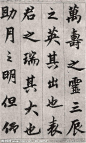 萬壽之靈三辰
君之瑞其大也表
之英其出也
助月之明但偁